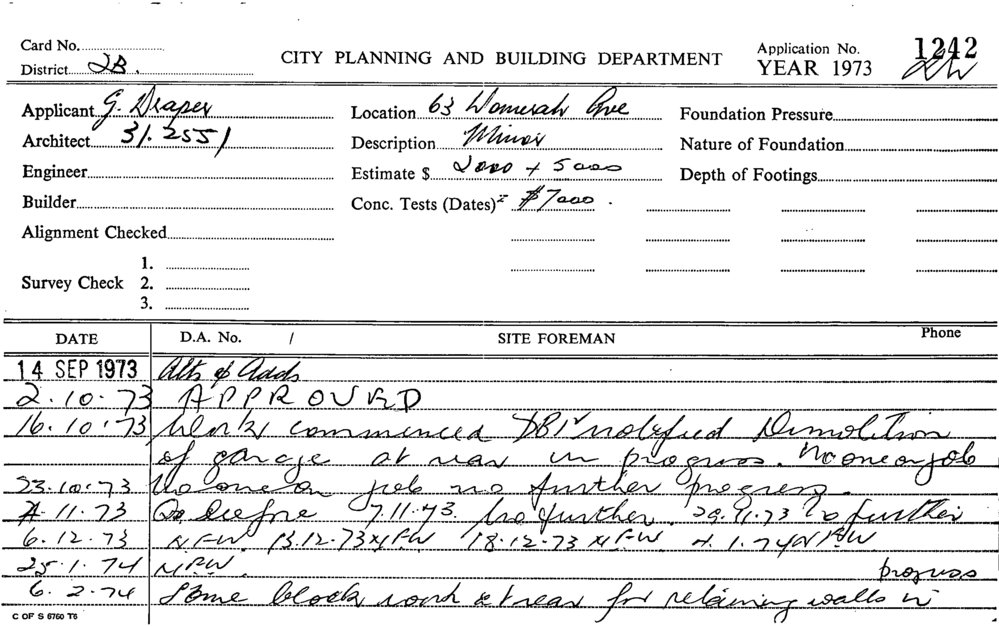 Card No. Application No. 1242
District 2B. CITY PLANNING AND BUILDING DEPARTMENT YEAR 1973
Applicant G. Draper Location 63 Womerah Ave Foundation Pressure
Architect 31.2551 Description Minor Nature of Foundation
Engineer Estimate $ 2000 + 5000 Depth of Footings
Builder Conc. Tests (Dates) = $7000.
Alignment Checked
1.
Survey Check 2.
3.
DATE D.A. No. / SITE FOREMAN Phone
14 SEP 1973 Alts & Adds
2.10.73 APPROVED
16.10.73 Work commenced DBI notified Demolition
of garage at rear in progress. No one on job
23.10.73 No one on job no further progress.
11.73 As before 7.11.73. No further. 29.11.73 No further
6.12.73 NFW. 13.12.73 NFW 18.12.73 NFW. 4.1.74 NFW
25.1.74 NFW. progress
6.2.74 Some block work at rear for retaining walls in
C OF S 6760 T6